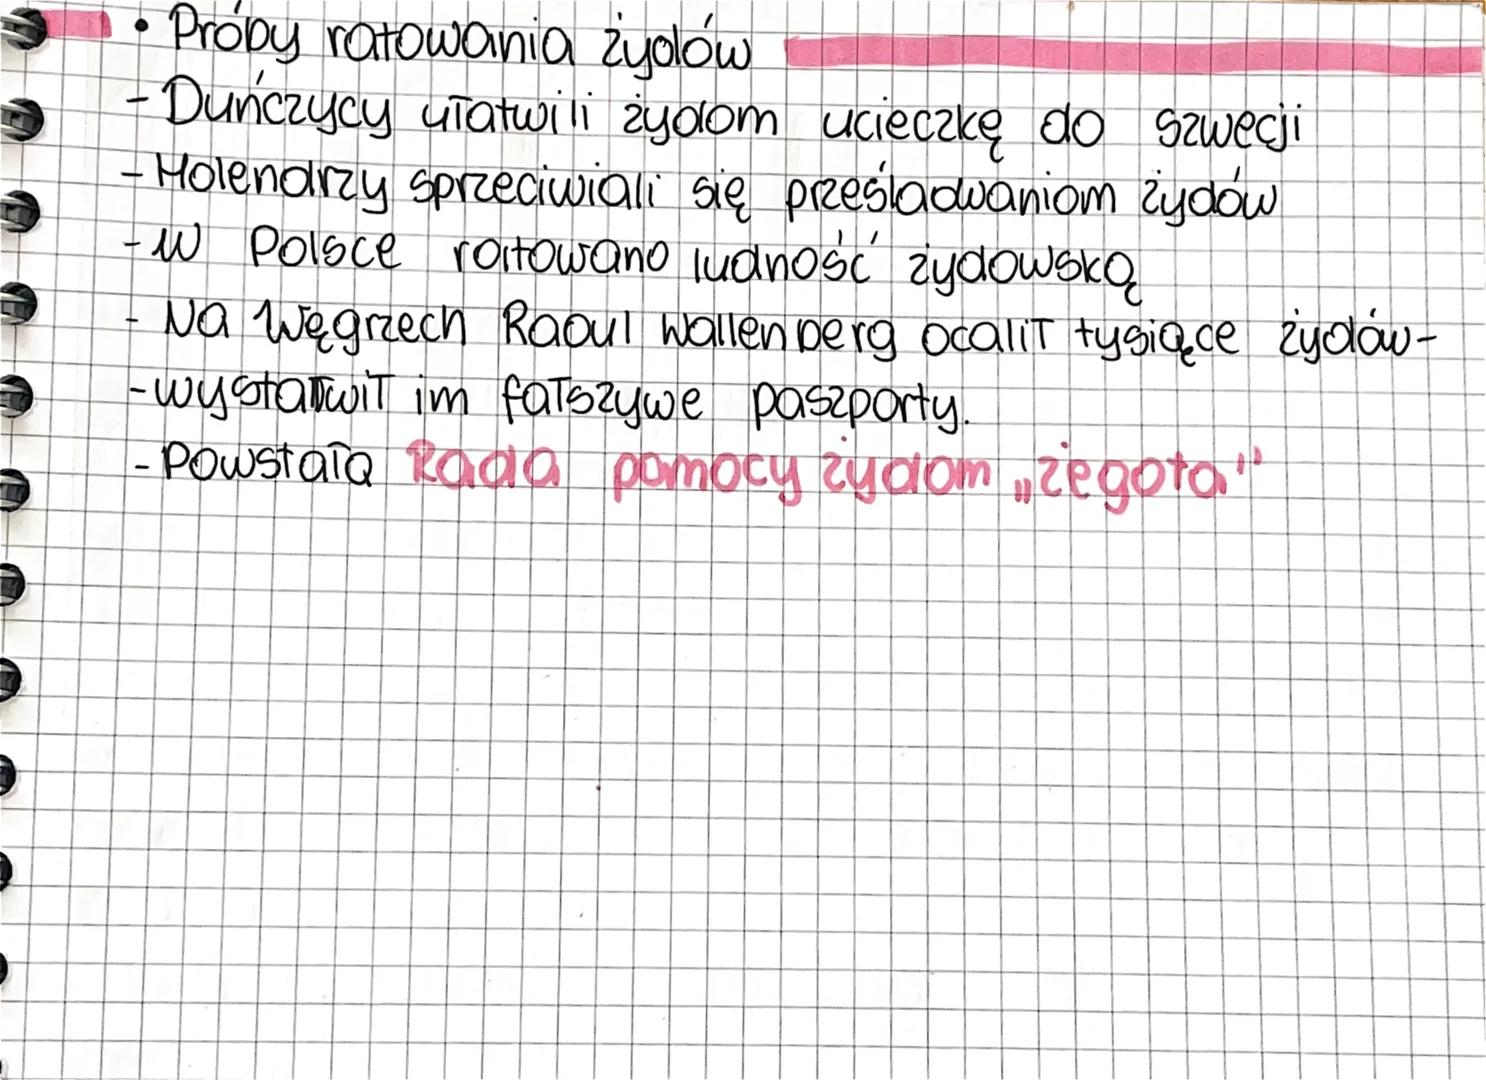 • Próby ratowania żydów
- Duńczycy ułatwili żydom ucieczkę do szwecji
- Holendrzy sprzeciwiali się prześladwaniom żydów
- W Polsce ratowano ludność żydowską
- Na Węgrzech Raoul Wallenberg ocalił tysiące żydów-
- wystawił im fałszywe paszporty.
- Powstała Rada pomocy żydom „żegota"